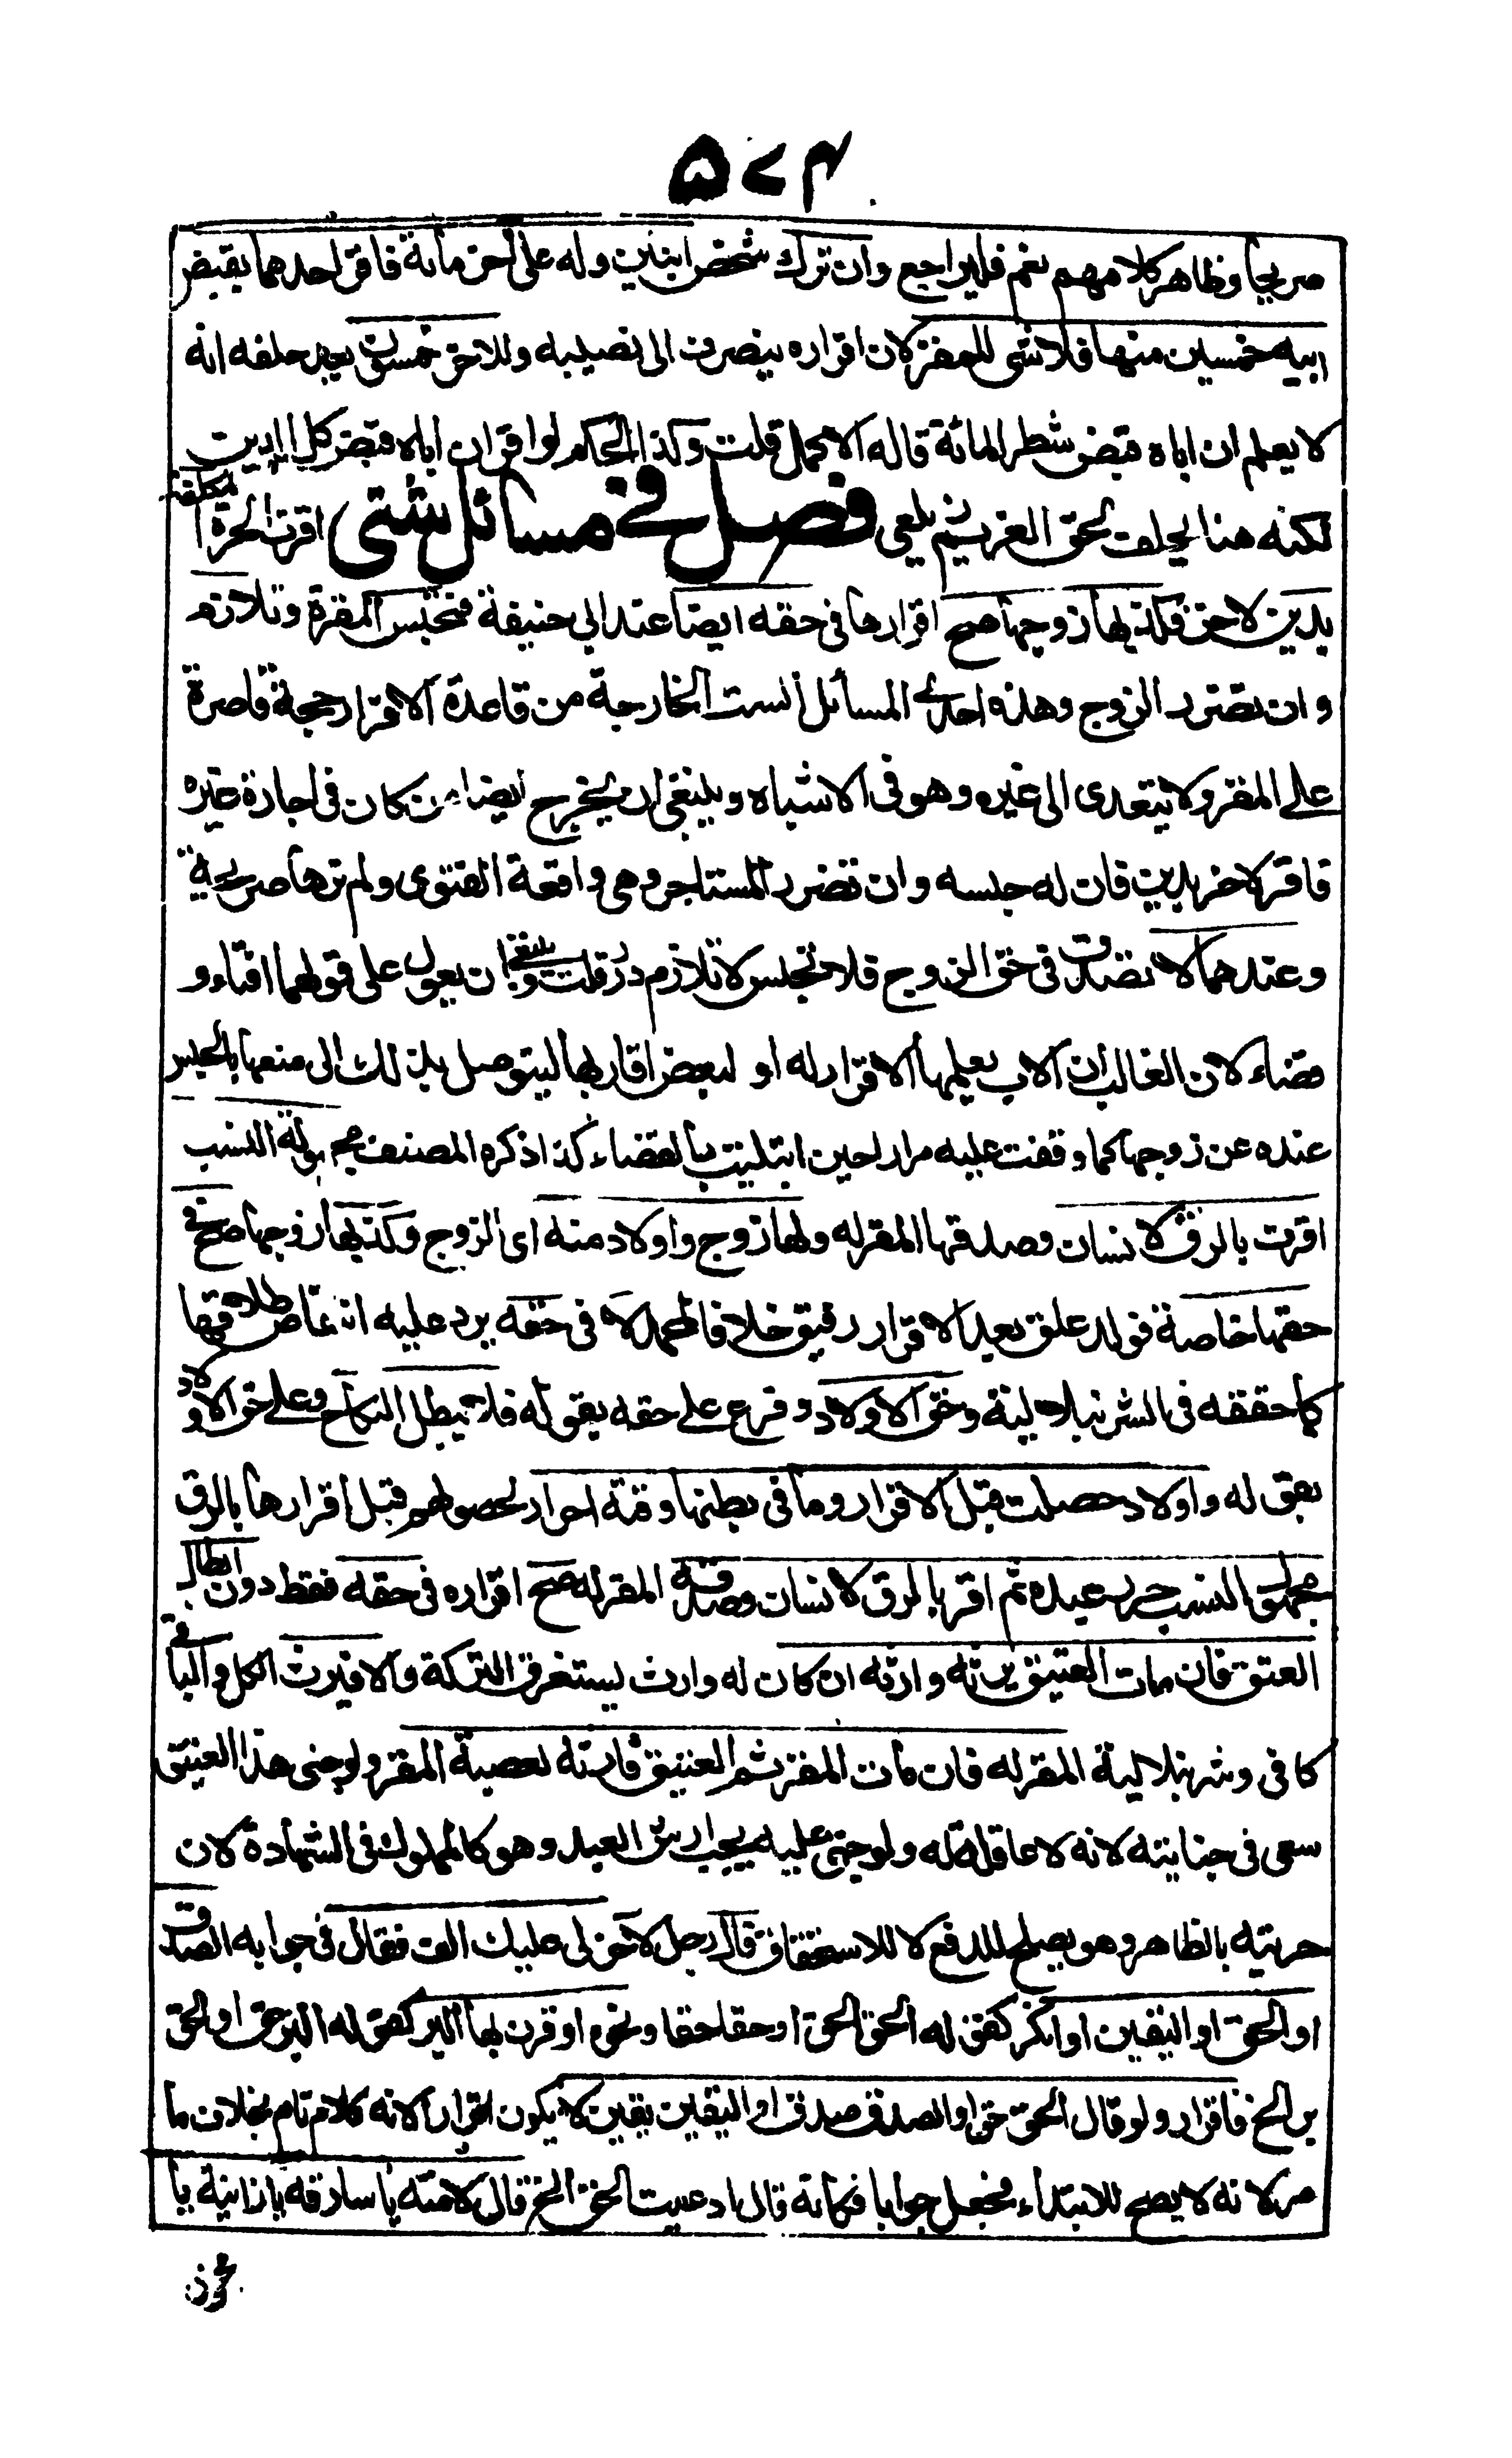 ۵۷۴
صريحا وظاهر كلامهم نعم فليراجع وان ترك شخص ابنين وله على آخر مائة فاقر احدهما بقبض
ابيه خمسين منها فلا شئ للمقر لان اقراره ينصرف الى نصيبه وللاخر خمسون بعد حلفه انه
لا يعلم ان اباه قبض شطر المائة قاله الاكمل قلت وكذا الحكم لو اقر ان اباه قبض كل الدين
لكنه هنا يحلف لحق الغريم زيلعي فصل في مسائل شتى اقرت الحرة المكلفة
بدين لاخر فكذبها زوجها صح اقرارها في حقه ايضا عند ابي حنيفة فتحبس المقرة وتلازم
وان تضرر الزوج وهذه احدى المسائل الست الخارجة من قاعدة الاقرار حجة قاصرة
على المقر ولا يتعدى الى غيره وهو في الاشباه وينبغي ان يخرج ايضا من كان في اجارة غيره
فاقر لاخر بدين فان له حبسه وان تضرر المستاجر وهي واقعة الفتوى ولم نرها صريحة
وعندهما لا تصدق في حق الزوج فلا تحبس لا تلازم درر قلت وينبغي ان يعول على قولهما افتاء و
قضاء لان الغالب ان الاب يعلمها الاقرار له او لبعض اقاربها ليتوصل بذلك الى منعها بالحبس
عنده عن زوجها كما وقفت عليه مرارا حين ابتليت بالقضاء كذا ذكره المصنف مجهولة النسب
اقرت بالرق لانسان وصدقها المقر له ولها زوج واولاد منه اى الزوج وكذبها زوجها صح في
حقها خاصة فولد علق بعد الاقرار رقيق خلافا لمحمد لا في حقه يرد عليه انتقاص طلاقها
كما حققه في الشرنبلالية وحق الاولاد وفرع على حقه بقوله فلا يبطل النكاح وعلى حق الاولاد
بقوله واولاد حصلت قبل الاقرار وما في بطنها وقته احرار لحصولهم قبل اقرارها بالرق
مجهول النسب حرر عبده ثم اقر بالرق لانسان وصدقه المقر له صح اقراره في حقه فقط دون ابطال
العتق فان مات العتيق يرثه وارثه ان كان له وارث يستغرق التركة والا فيرث الكل والباقي
كافي وشرنبلالية المقر له فان مات المقر ثم العتيق فارثه لعصبة المقر ولو جنى هذا العتيق
سعى في جنايته لانه لا عاقلة له ولو جنى عليه يجب ارش العبد وهو كالمملوك في الشهادة لان
حريته بالظاهر وهو يصلح للدفع لا للاستحقاق قال رجل لاخر لى عليك الف فقال في جوابه الصدق
او الحق او اليقين او انكر كقوله الحق الحق او حقا حقا ونحوه او قرن بها البر كقوله البر حق او الحق
بر الخ فاقرار ولو قال الحق حق او الصدق صدق او اليقين يقين لا يكون اقرارا لانه كلام تام بخلاف ما
مر لانه لا يصح للابتداء فجعل جوابا فكانه قال ادعيت الحق الخ قال لامته يا سارقة يا زانية يا